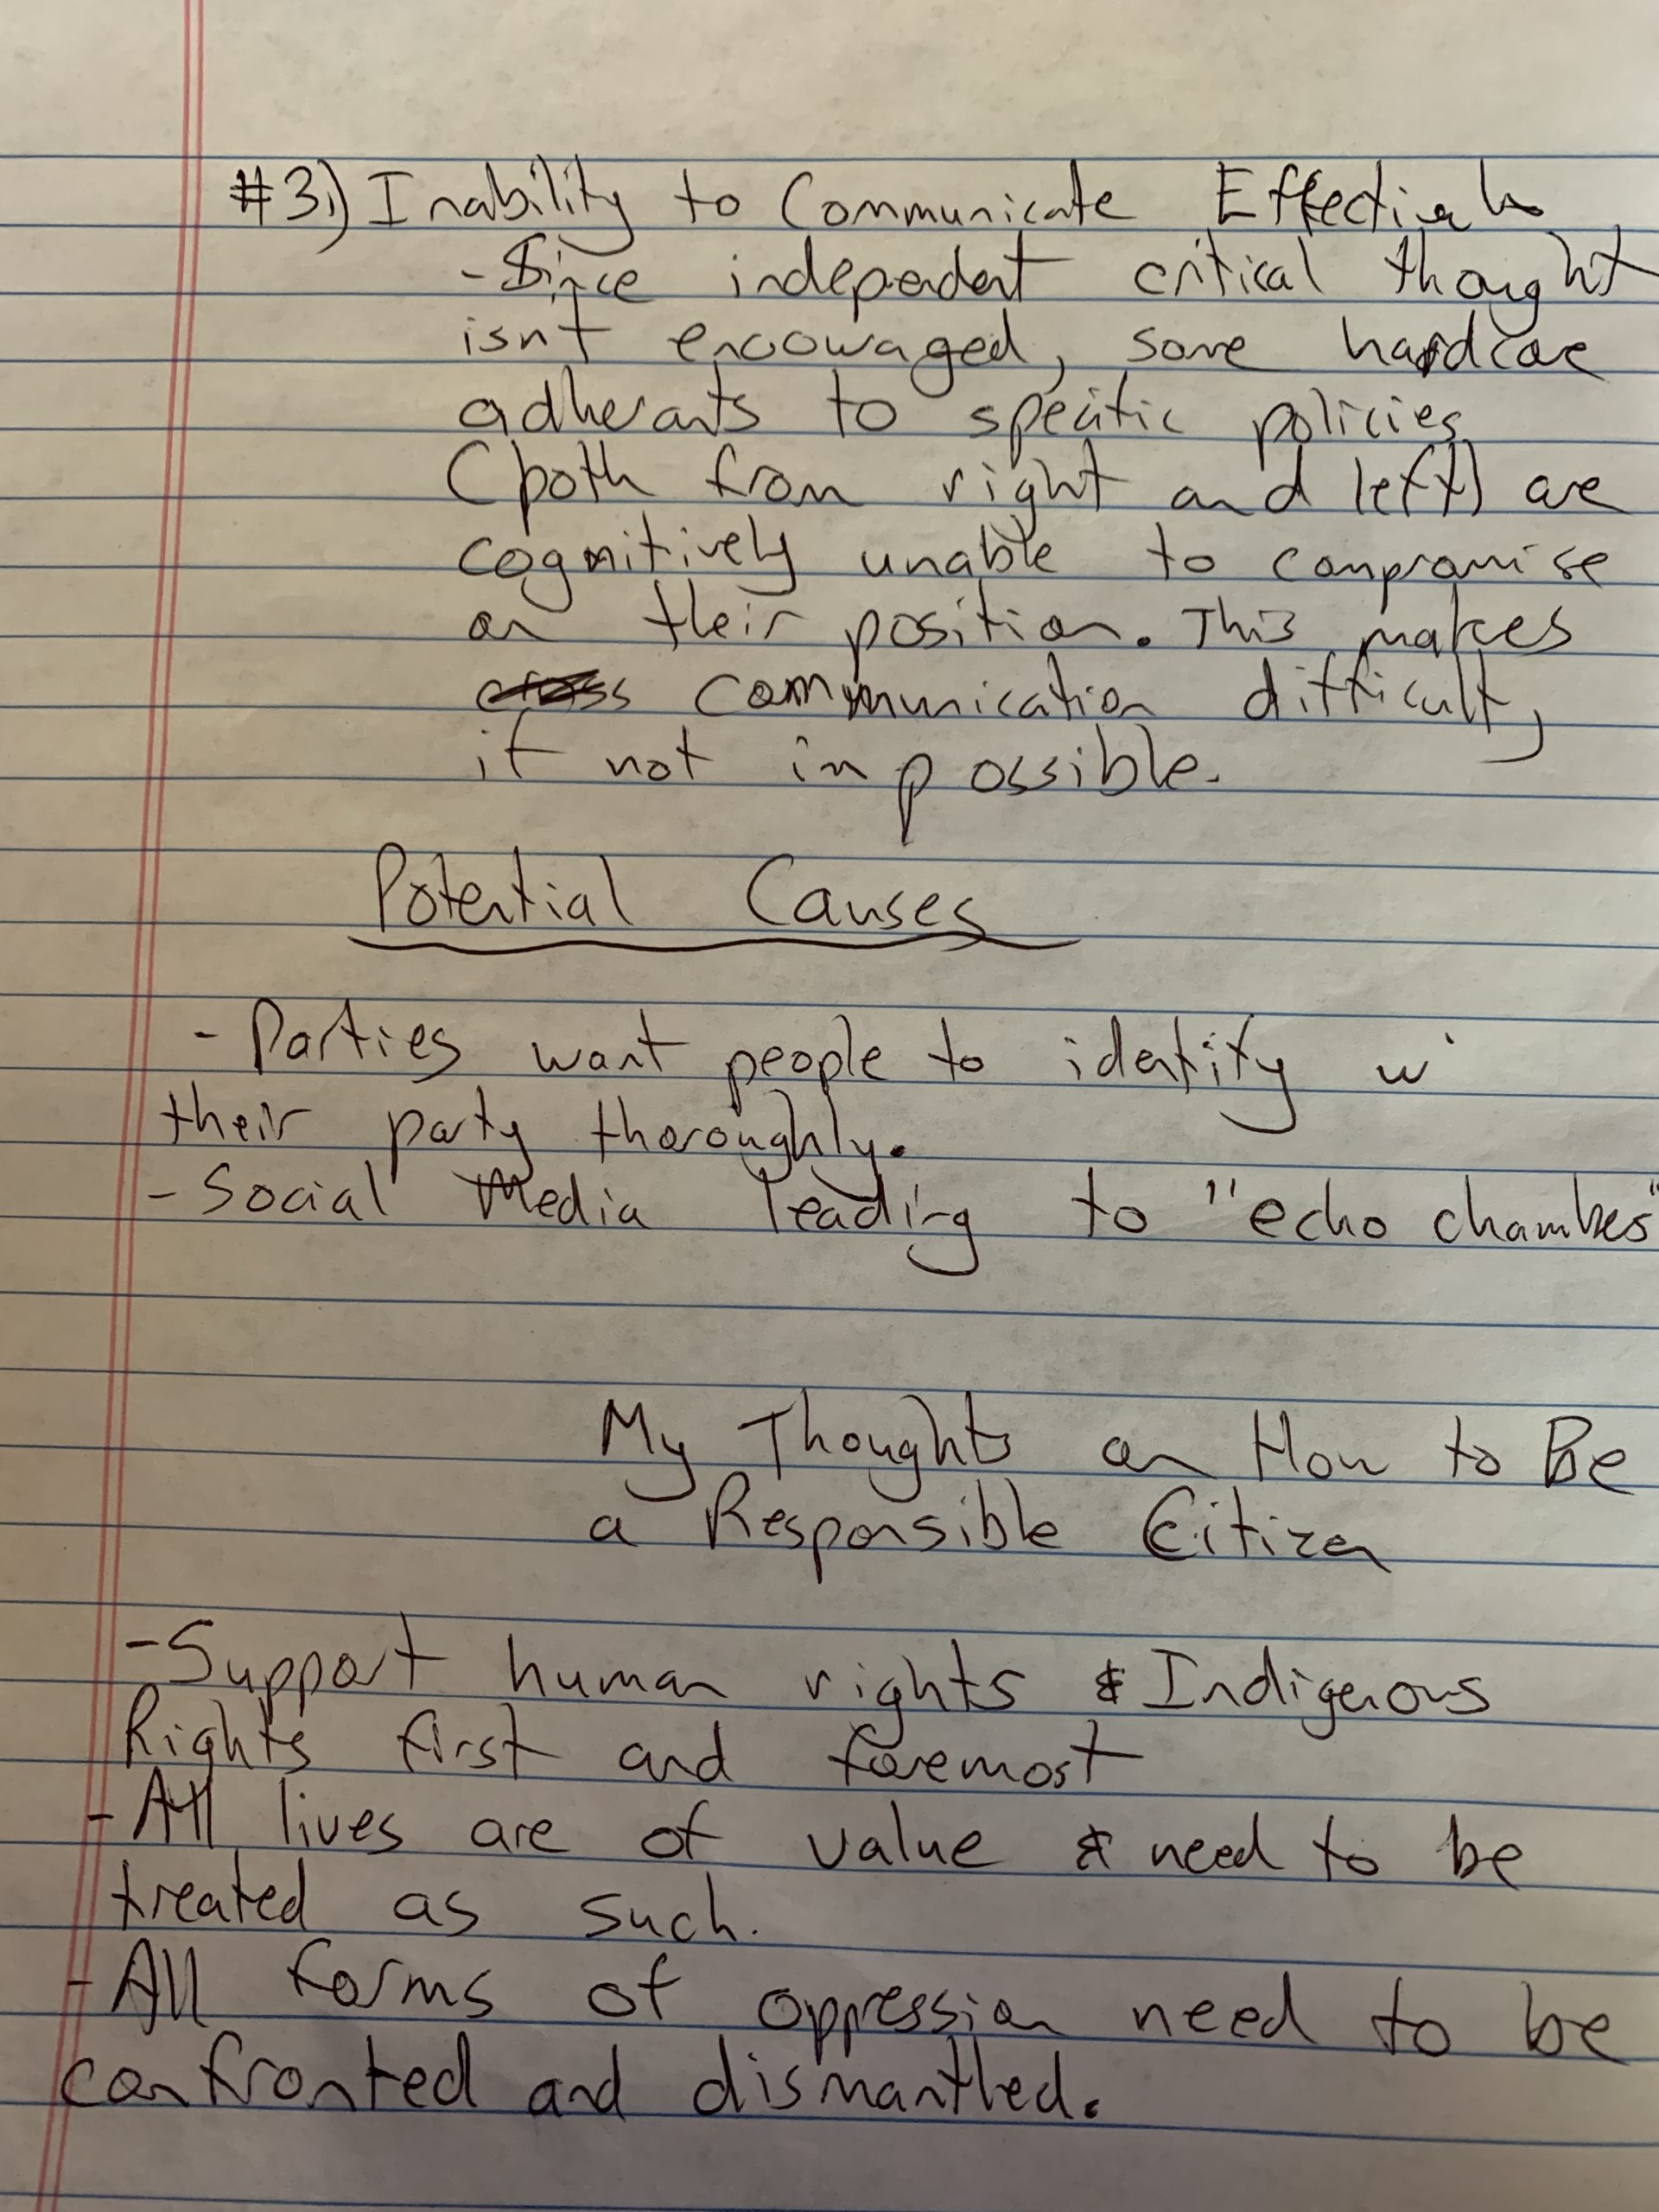 #3.) Inability to Communicate Effectively
- Since independent critical thought
isn't encouraged, some hardcore
adherants to specific policies
(both from right and left) are
cognitively unable to compromise
on their position. This makes
communication difficult,
if not impossible.
Potential Causes
- Parties want people to identify w'
their party thoroughly.
- Social Media leading to "echo chambers"
My Thoughts on How to Be
a Responsible Citizen
- Support human rights & Indigenous
Rights first and foremost
- All lives are of value & need to be
treated as such.
- All forms of oppression need to be
confronted and dismantled.